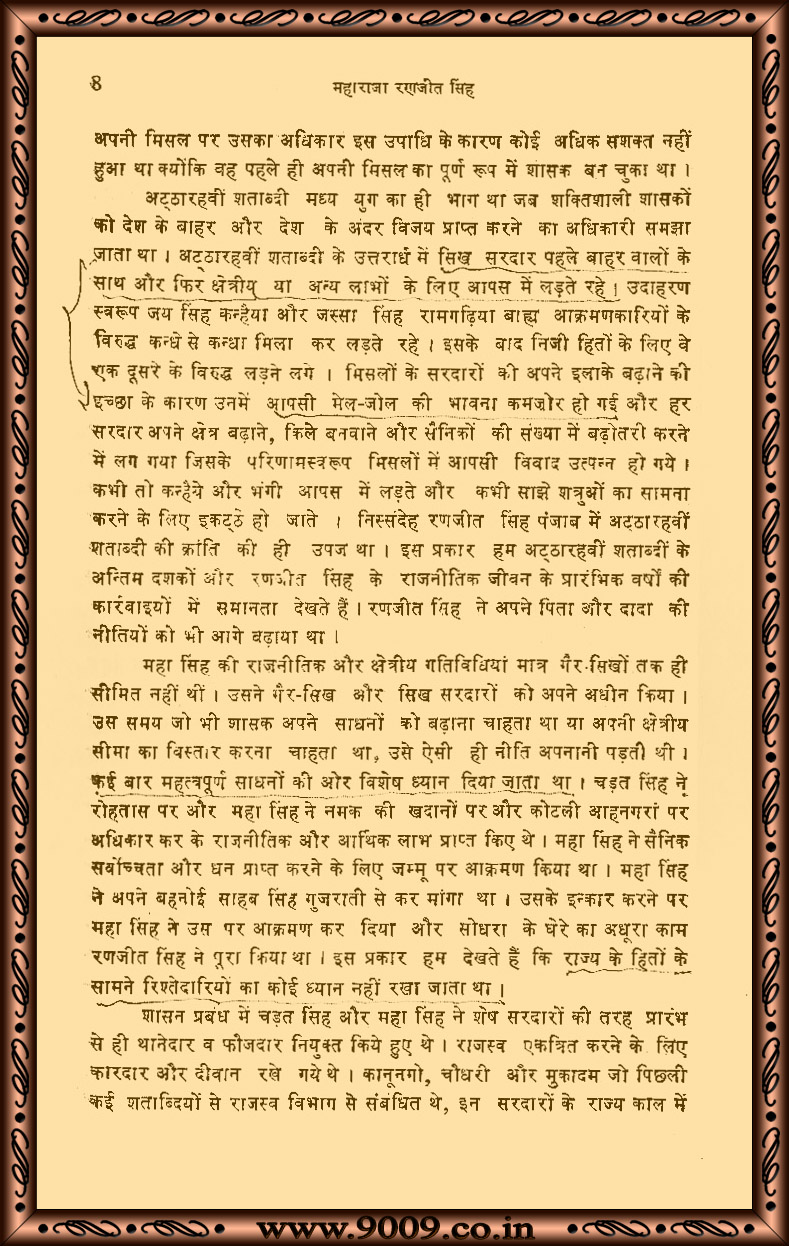 8
महाराजा रणजीत सिंह
अपनी मिसल पर उसका अधिकार इस उपाधि के कारण कोई अधिक सशक्त नहीं
हुआ था क्योंकि वह पहले ही अपनी मिसल का पूर्ण रूप में शासक बन चुका था ।
अट्ठारहवीं शताब्दी मध्य युग का ही भाग था जब शक्तिशाली शासकों
को देश के बाहर और देश के अंदर विजय प्राप्त करने का अधिकारी समझा
जाता था । अट्ठारहवीं शताब्दी के उत्तरार्ध में सिख सरदार पहले बाहर वालों के
साथ और फिर क्षेत्रीय या अन्य लाभों के लिए आपस में लड़ते रहे । उदाहरण
स्वरूप जय सिंह कन्हैया और जस्सा सिंह रामगढ़िया बाह्य आक्रमणकारियों के
विरुद्ध कन्धे से कन्धा मिला कर लड़ते रहे । इसके बाद निजी हितों के लिए वे
एक दूसरे के विरुद्ध लड़ने लगे । मिसलों के सरदारों की अपने इलाके बढ़ाने की
इच्छा के कारण उनमें आपसी मेल-जोल की भावना कमजोर हो गई और हर
सरदार अपने क्षेत्र बढ़ाने, किले बनवाने और सैनिकों की संख्या में बढ़ोतरी करने
में लग गया जिसके परिणामस्वरूप मिसलों में आपसी विवाद उत्पन्न हो गये ।
कभी तो कन्हैये और भंगी आपस में लड़ते और कभी साझे शत्रुओं का सामना
करने के लिए इकट्ठे हो जाते । निस्संदेह रणजीत सिंह पंजाब में अट्ठारहवीं
शताब्दी की क्रांति की ही उपज था । इस प्रकार हम अट्ठारहवीं शताब्दीं के
अन्तिम दशकों और रणजीत सिंह के राजनीतिक जीवन के प्रारंभिक वर्षों की
कार्रवाइयों में समानता देखते हैं । रणजीत सिंह ने अपने पिता और दादा की
नीतियों को भी आगे बढ़ाया था ।
महा सिंह की राजनीतिक और क्षेत्रीय गतिविधियां मात्र गैर-सिखों तक ही
सीमित नहीं थीं । उसने गैर-सिख और सिख सरदारों को अपने अधीन किया ।
उस समय जो भी शासक अपने साधनों को बढ़ाना चाहता था या अपनी क्षेत्रीय
सीमा का विस्तार करना चाहता था, उसे ऐसी ही नीति अपनानी पड़ती थी ।
कई बार महत्वपूर्ण साधनों की ओर विशेष ध्यान दिया जाता था । चड़त सिंह ने
रोहतास पर और महा सिंह ने नमक की खदानों पर और कोटली आहनगरां पर
अधिकार कर के राजनीतिक और आर्थिक लाभ प्राप्त किए थे । महा सिंह ने सैनिक
सर्वोच्चता और धन प्राप्त करने के लिए जम्मू पर आक्रमण किया था । महा सिंह
ने अपने बहनोई साहब सिंह गुजराती से कर मांगा था । उसके इन्कार करने पर
महा सिंह ने उस पर आक्रमण कर दिया और सोधरा के घेरे का अधूरा काम
रणजीत सिंह ने पूरा किया था । इस प्रकार हम देखते हैं कि राज्य के हितों के
सामने रिश्तेदारियों का कोई ध्यान नहीं रखा जाता था ।
शासन प्रबंध में चड़त सिंह और महा सिंह ने शेष सरदारों की तरह प्रारंभ
से ही थानेदार व फौजदार नियुक्त किये हुए थे । राजस्व एकत्रित करने के लिए
कारदार और दीवान रखे गये थे । कानूनगो, चौधरी और मुकादम जो पिछली
कई शताब्दियों से राजस्व विभाग से संबंधित थे, इन सरदारों के राज्य काल में
www.9009.co.in